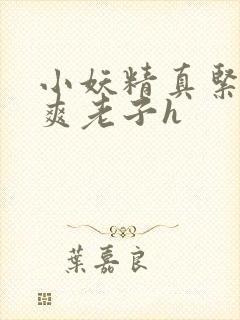 小妖精真緊
爽老子h
葉嘉良